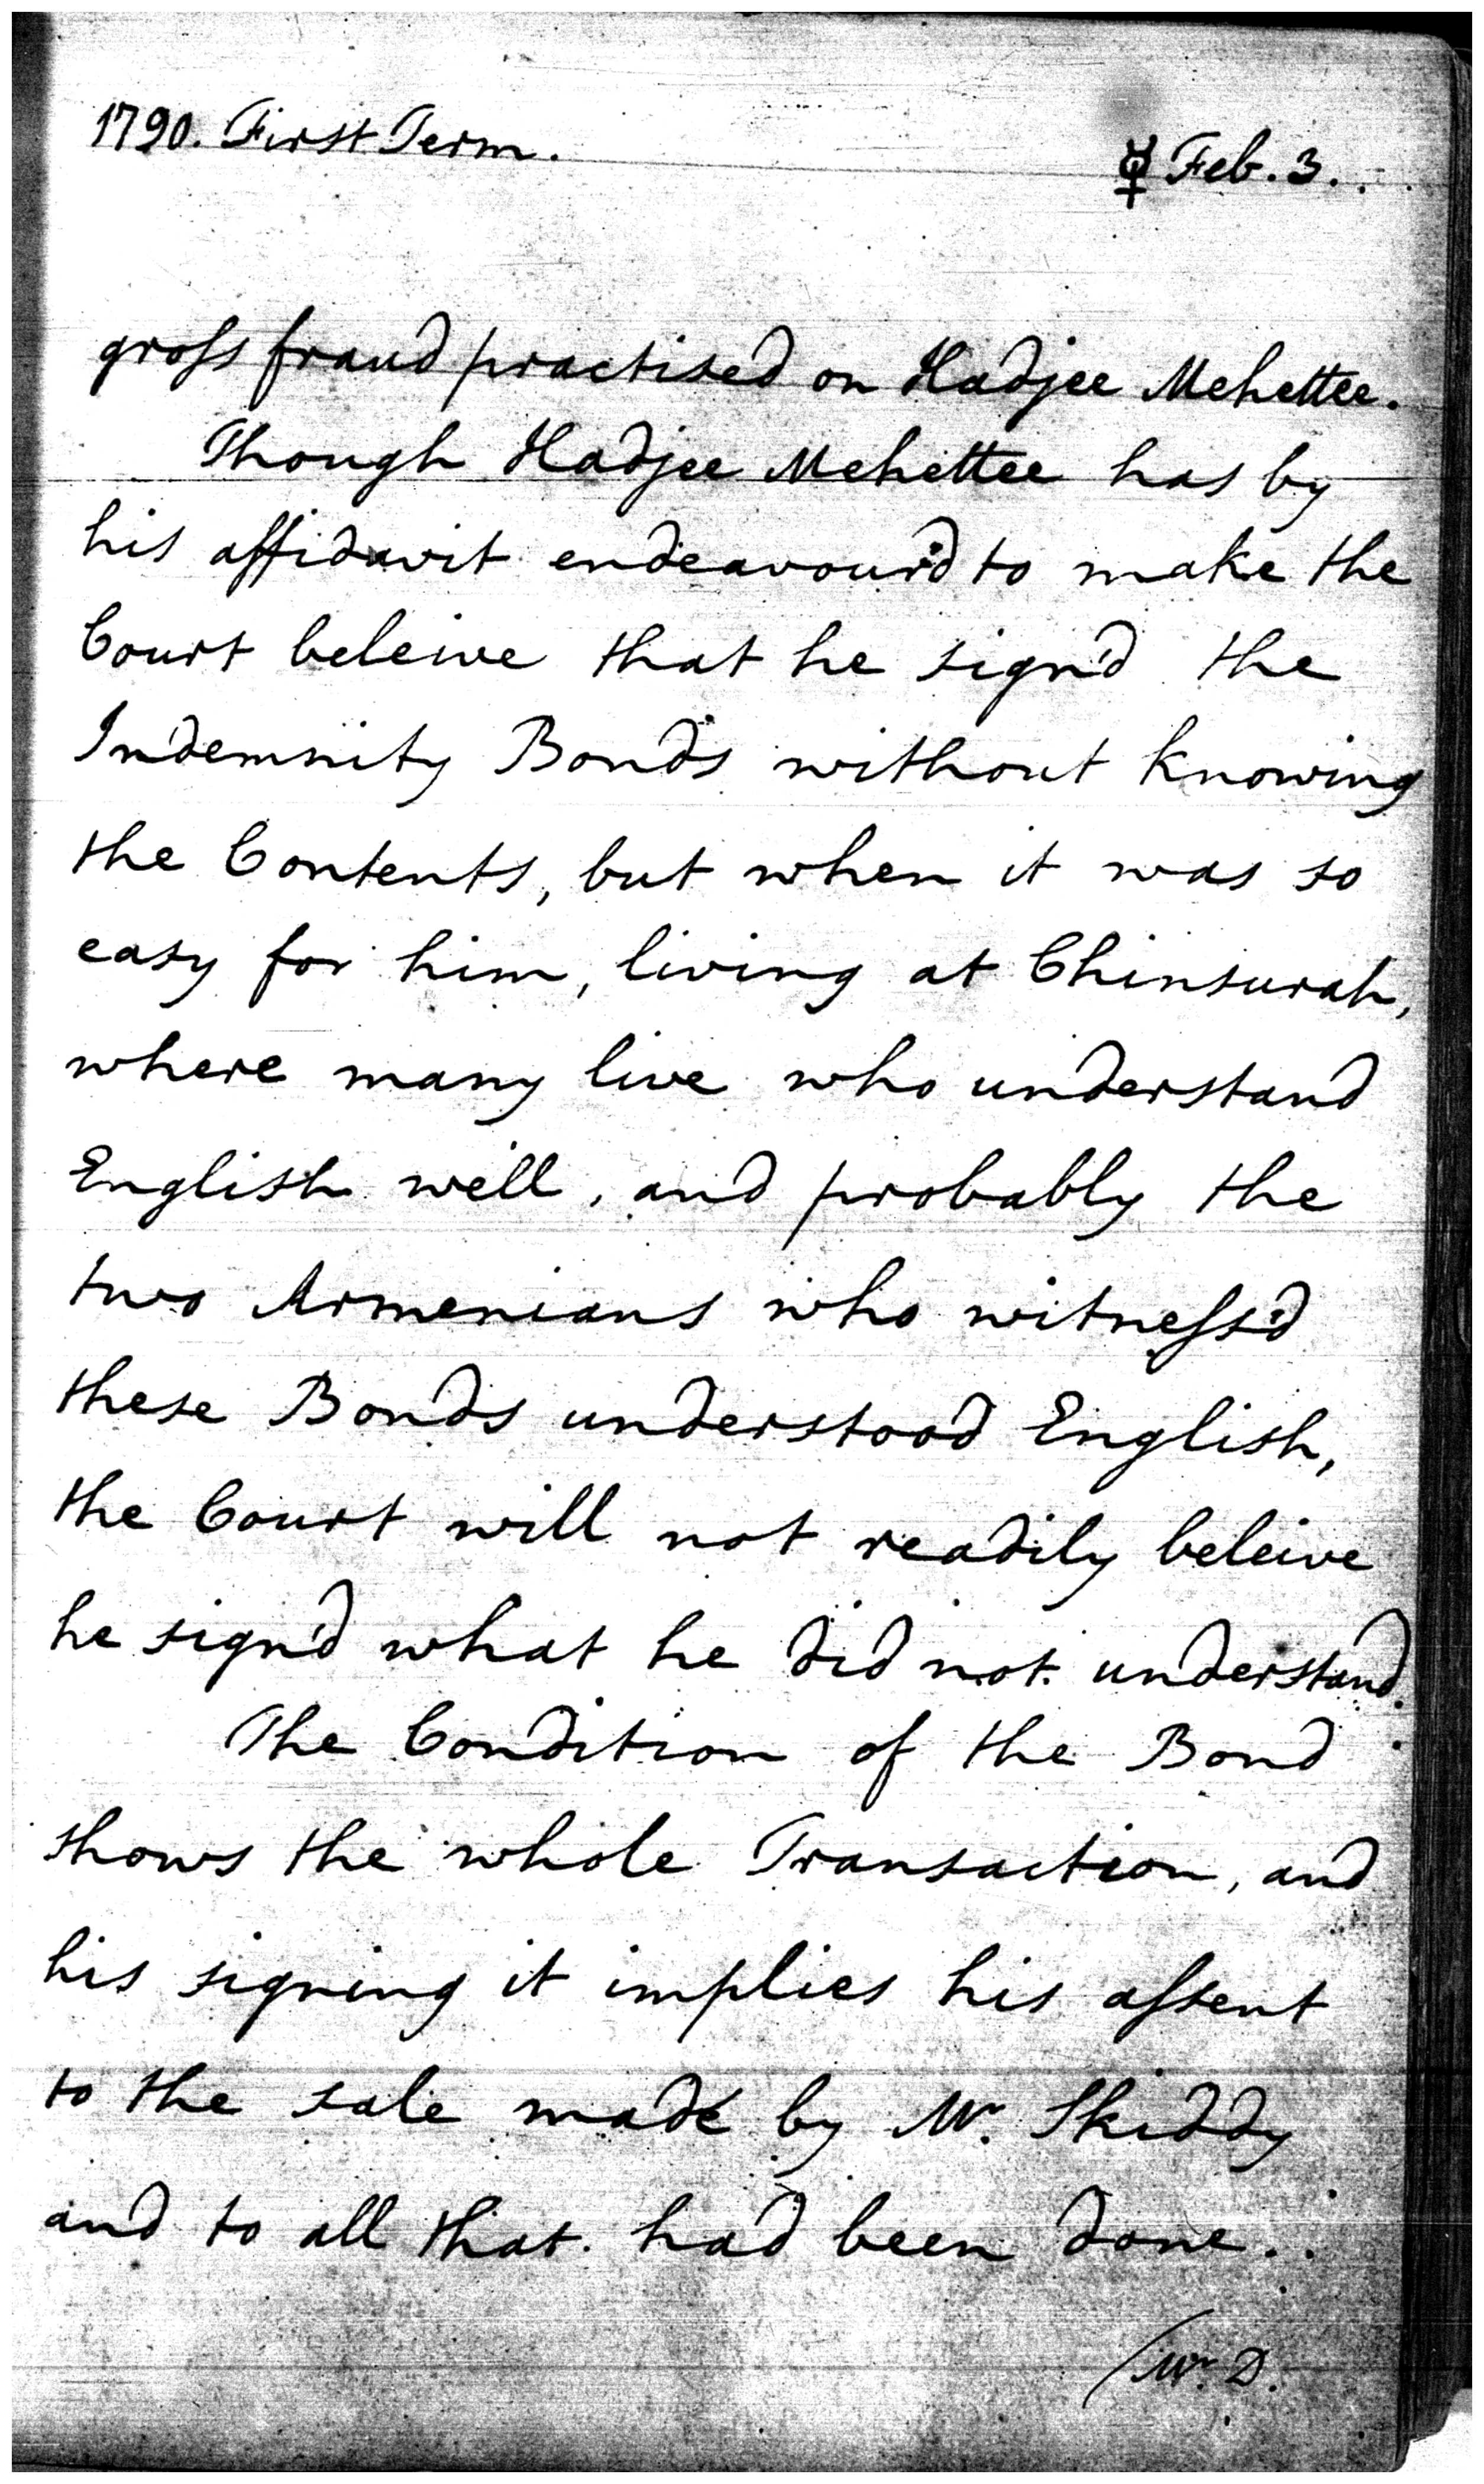 1790. First Term.
☿ Feb. 3.
groſs fraud practised on Hadjee Mehettee.
Though Hadjee Mehettee has by
his affidavit endeavour'd to make the
Court beleive that he sign'd the
Indemnity Bonds without knowing
the Contents, but when it was so
easy for him, living at Chinsurah,
where many live who understand
English well, and probably the
two Armenians who witneſs'd
these Bonds understood English,
the Court will not readily beleive
he sign'd what he did not understand.
The Condition of the Bond
shows the whole Transaction, and
his signing it implies his aſsent
to the sale made by Mr. Skiddy
and to all that had been done.
/Mr. D.